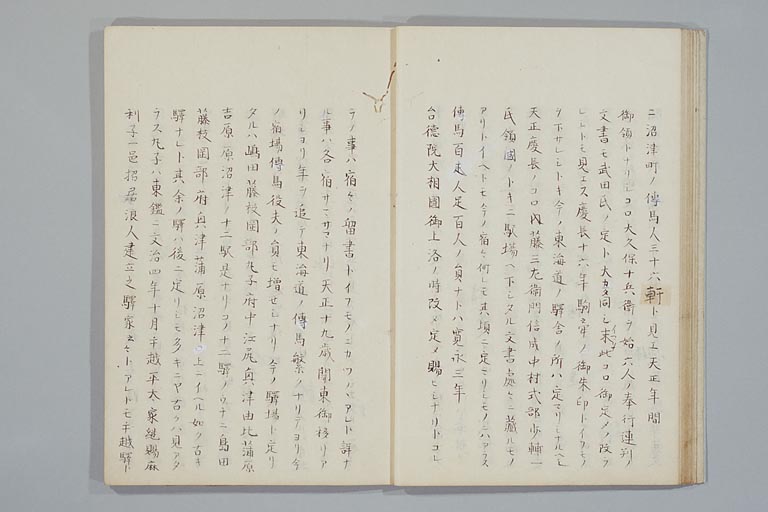 ニ沼津町ノ傳馬人三十六軒ト見エ天正年間
御領トナリシコロ大久保十兵衛ヲ始六人ノ奉行連判ノ
文書モ武田氏ノ定ト大カタ同シ末此コロ御定メノ改ラ
レシトモ見エス慶長十六年駒牽ノ御朱印トイフモノ
ヲ下サレシトキ今ノ東海道ノ驛舎ノ所ハ定マリシナルヘシ
天正慶長ノコロ内藤三左衛門信成中村式部少輔一
氏領國ノトキニ駅場ヘ下シタル文書處々ニ藏ルモノ
アリトイヘトモ今ノ宿々何レモ其頃ニ定マリシモノニハアラス
傳馬百疋人足百人ノ員ナトハ寛永三年
台德院大相國御上洛ノ時改メ定メ賜ヒシナリトコレ
ラノ事ハ宿々ノ留書トイフモノニカツハアレト詳ナ
ル事ハ各宿サマサマナリ天正十九歳関東御移リア
リシヨリ年ヲ追テ東海道ノ傳馬繁ノナリテヨリ今
ノ宿場傳馬役夫ノ員モ増セシナリ今ノ驛場ト定リ
タルハ嶋田藤枝岡部丸子府中江尻奥津由比蒲原
吉原原沼津ノ十二駅是ナリコノ十二驛ノウチニ島田
藤枝岡部府奥津蒲原沼津ハ上ニイヘル如ク古キ
驛ナレト其余ノ驛ハ後ニ定リシモ多キニヤ古クハ見アタ
ラス丸子ハ東鑑ニ文治四年十月手越平太家継賜麻
利子一邑招居浪人建立之驛家云々トアレトモ手越驛ト